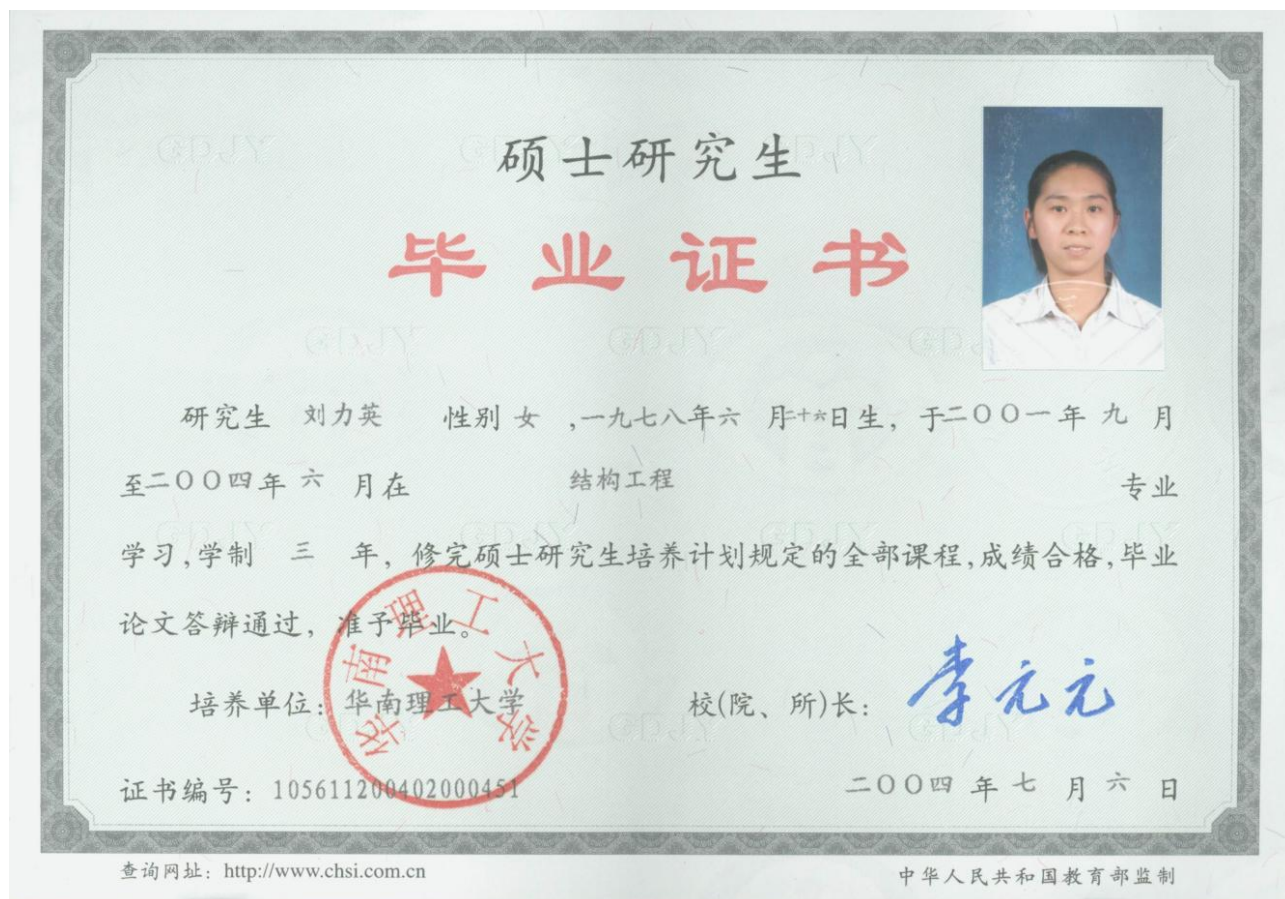 硕士研究生
毕业证书
研究生 刘力英 性别 女 ,一九七八年六 月二十六日生, 于二〇〇一年 九 月
至二〇〇四年 六 月在 结构工程 专业
学习,学制 三 年, 修完硕士研究生培养计划规定的全部课程,成绩合格,毕业
论文答辩通过, 准予毕业。
华南理工大学
培养单位: 华南理工大学 校(院、所)长: 李元元
证书编号: 105611200402000451 二〇〇四 年 七 月 六 日
查询网址: http://www.chsi.com.cn 中华人民共和国教育部监制